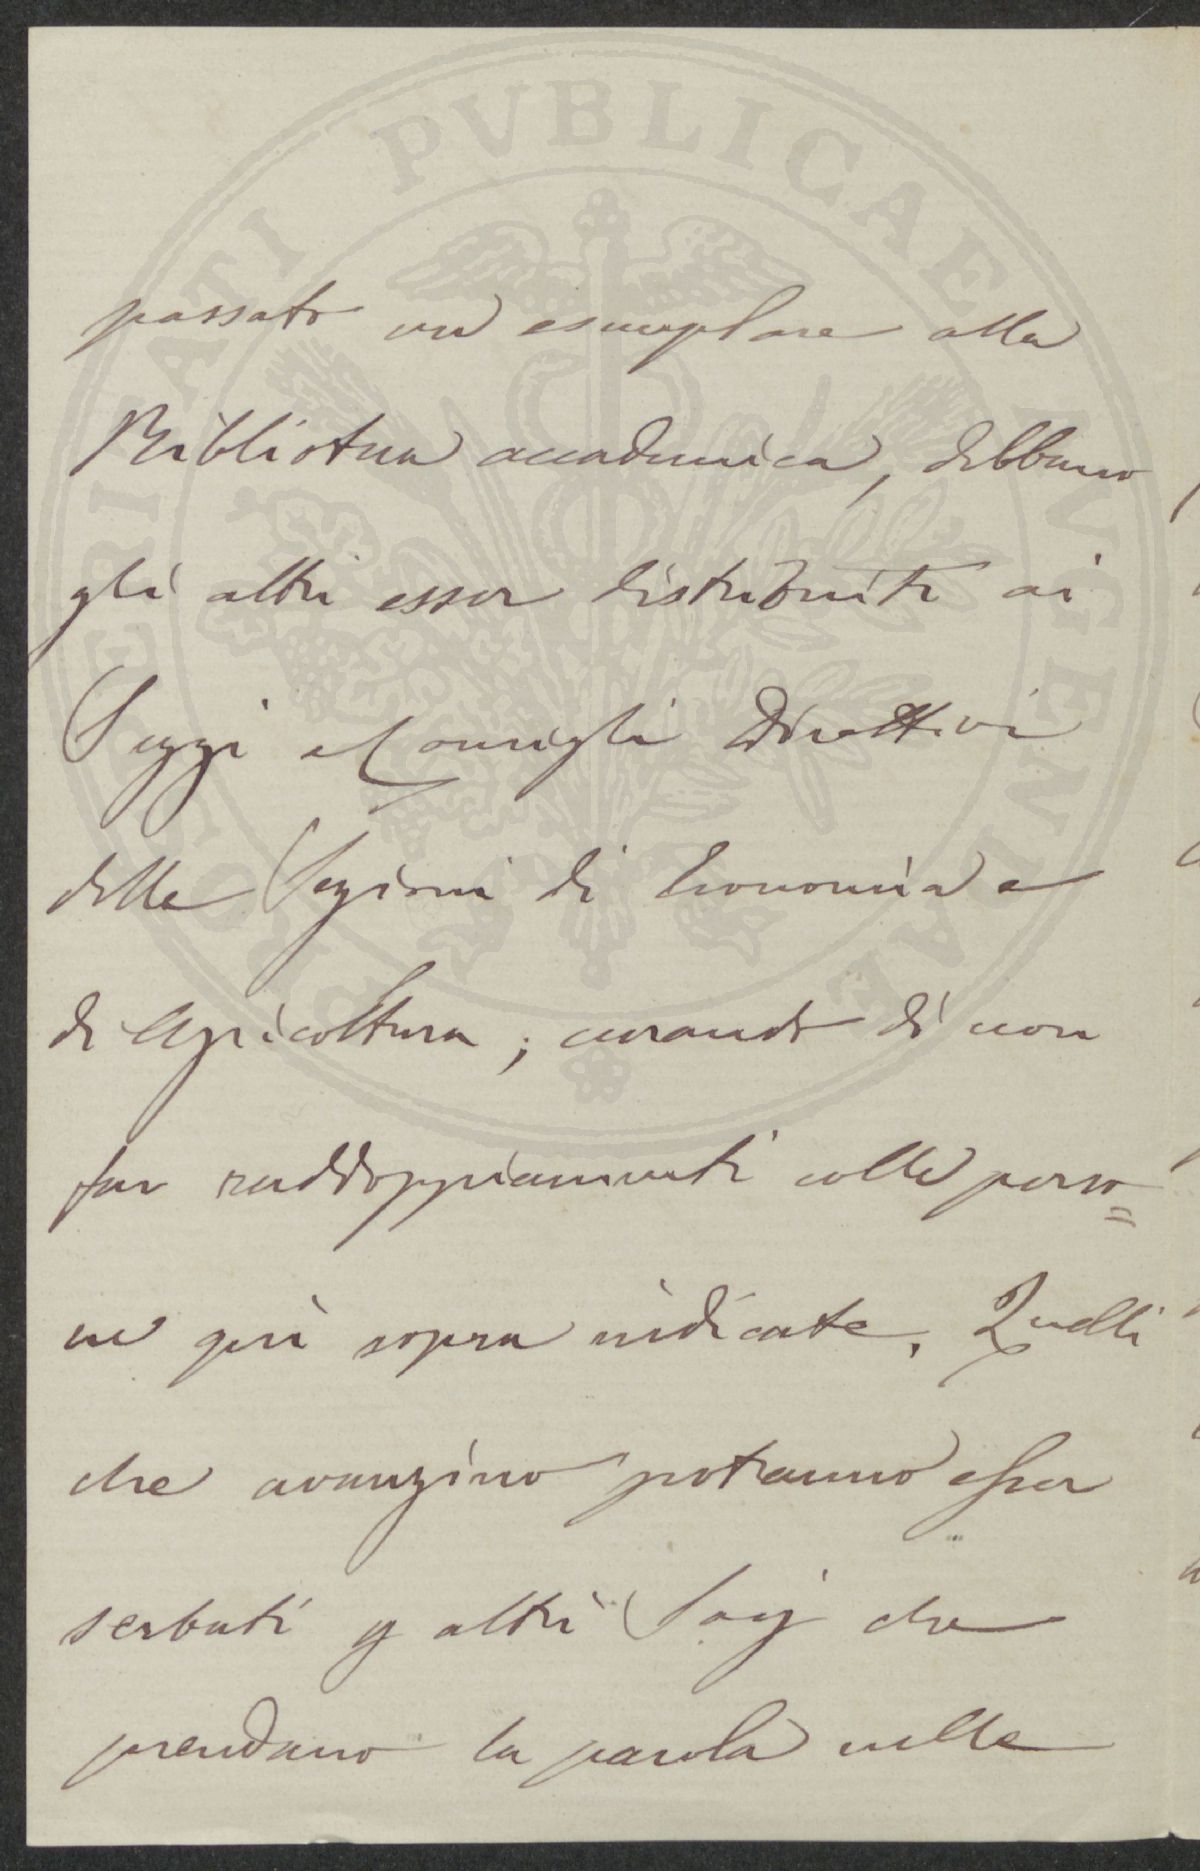 PROSPERITATI PVBLICAE AVGENDAE
passato un esemplare alla
Biblioteca accademica, debbano
gli altri esser distribuiti ai
Seggi e Consigli Direttivi
delle Sezioni di Economia e
di Agricoltura; curando di non
far raddoppiamenti colle perso=
ne qui sopra indicate. Quelli
che avanzino potranno esser
serbati p altri Socj che
prendano la parola nelle